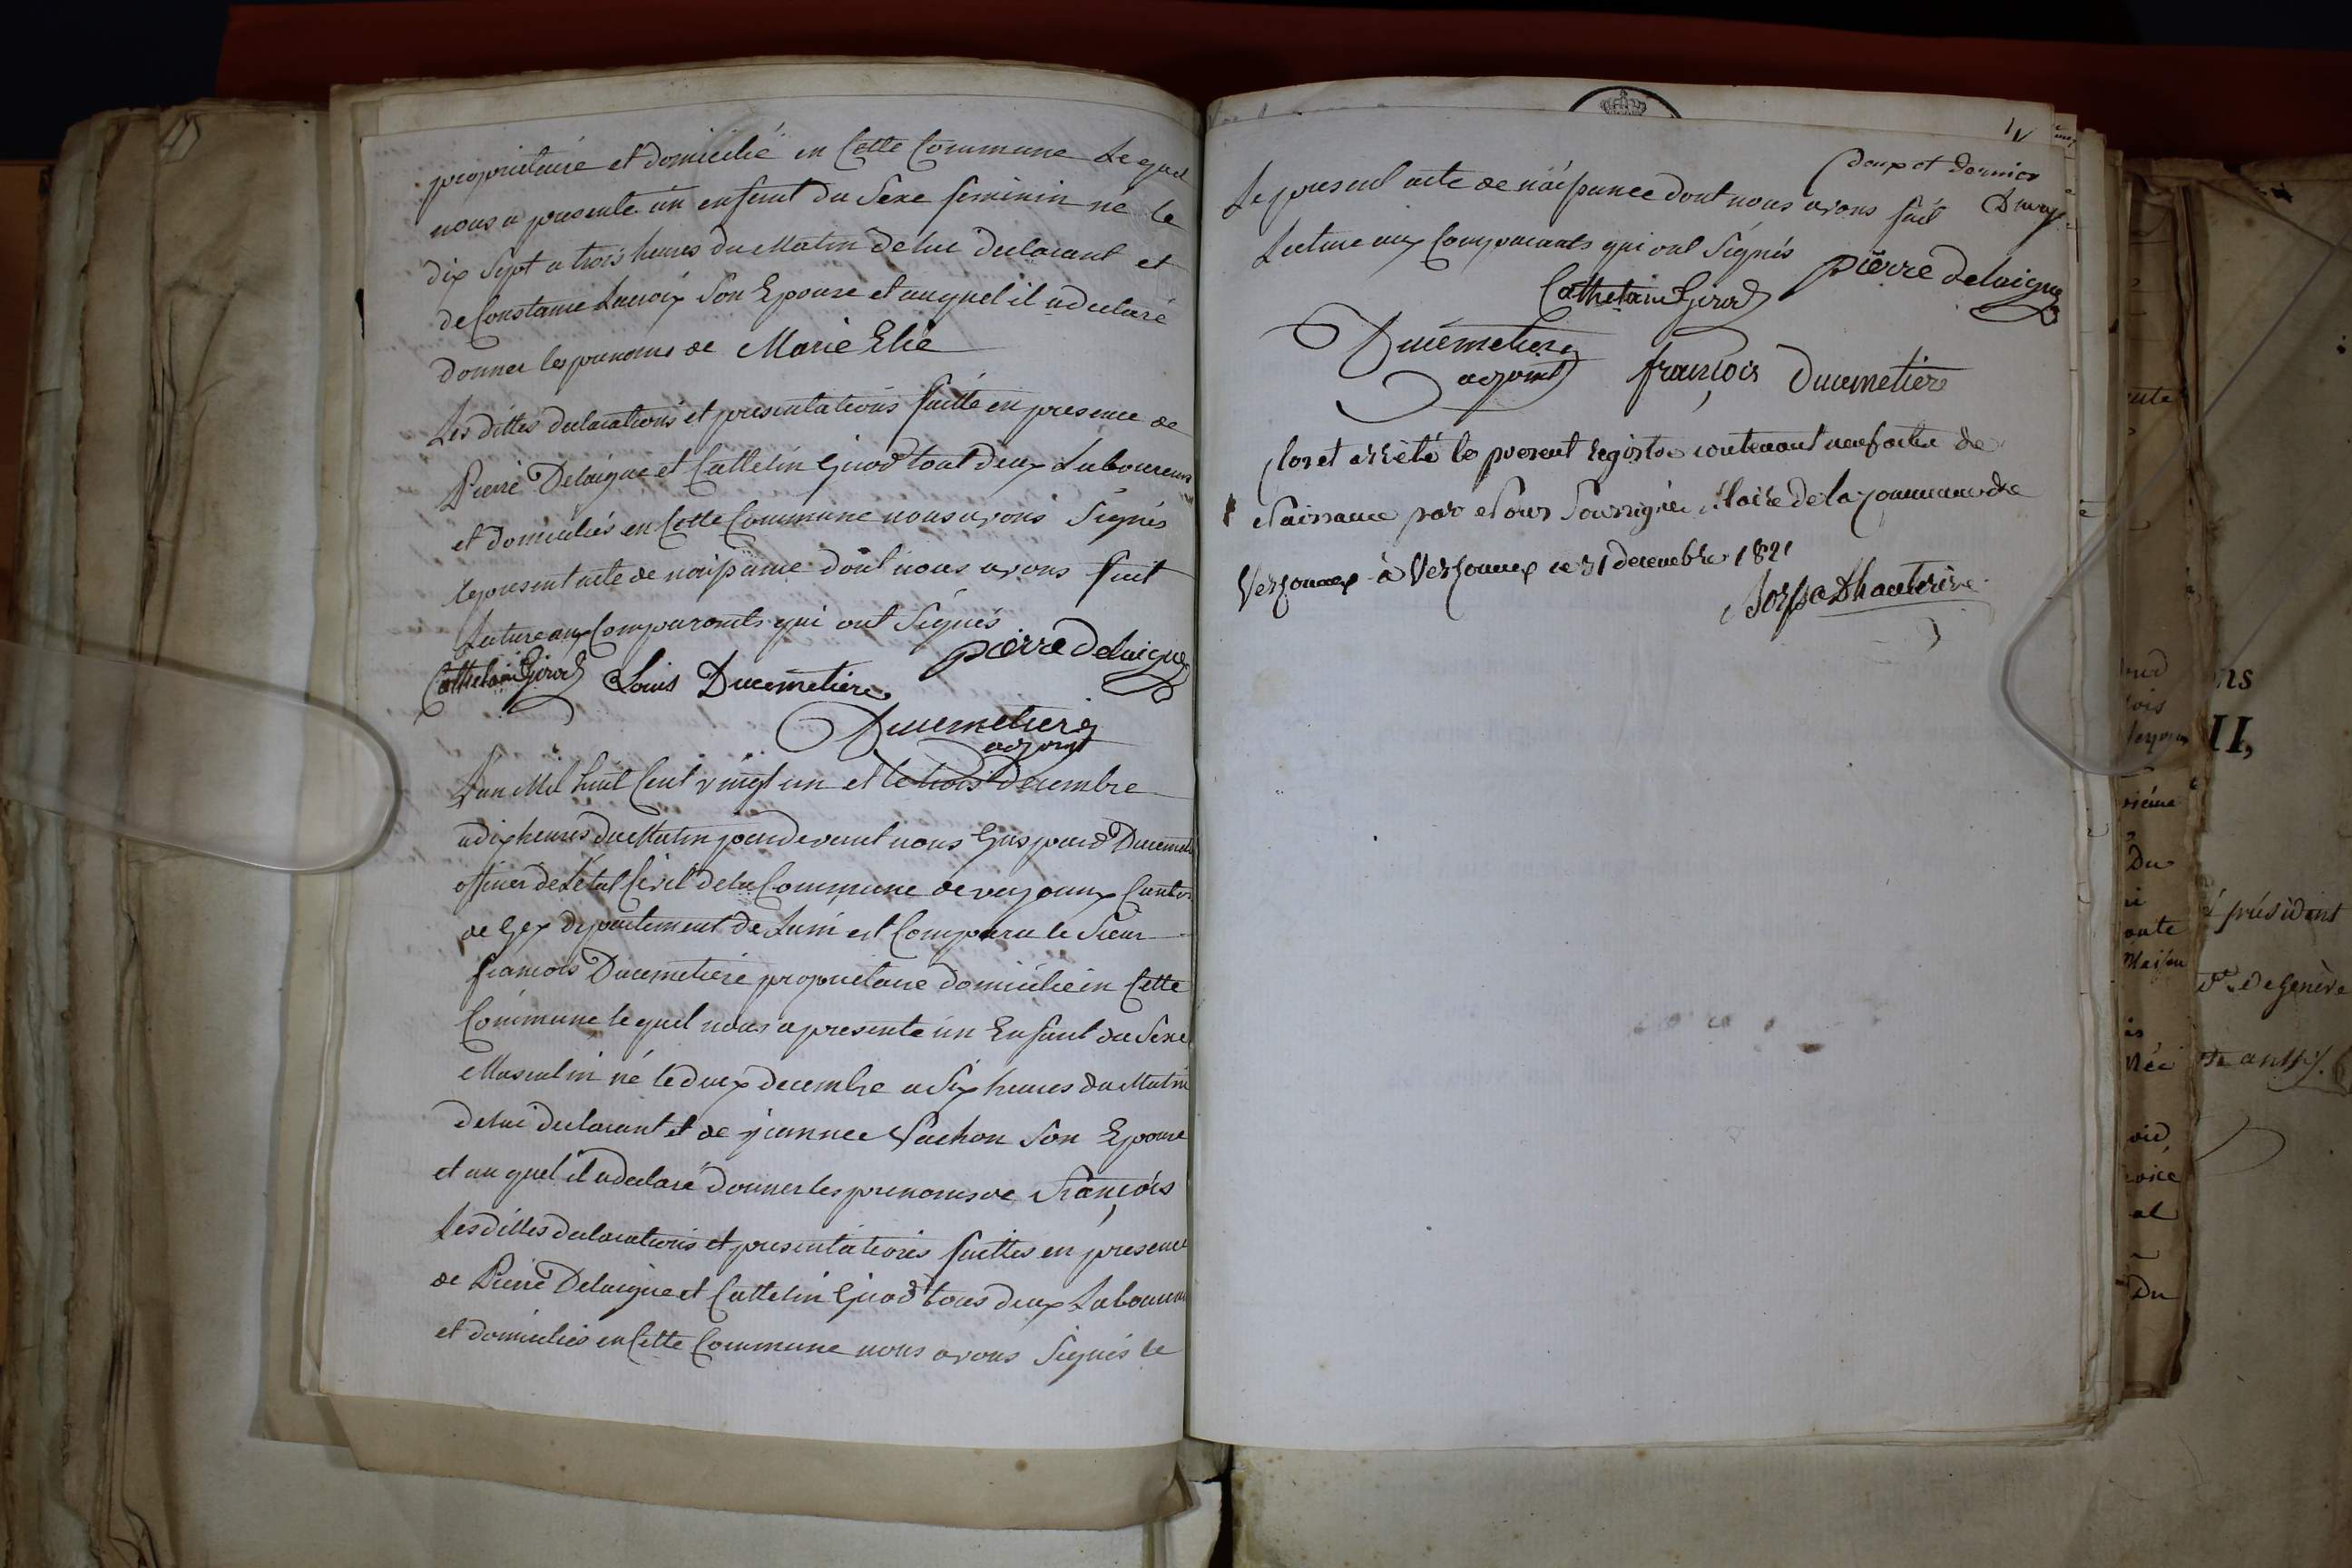 propriétaire et domicilié en Cette Commune Lequel
nous a presenté un enfent du Sexe feminin né le
dix Sept a trois heures du Matin de lui declarant et
de Constance Lacroix Son Epouse et auquel il a declaré
donner les prenoms de Marie Elie
Les dittes declarations et presentations faitte en presence de
Pierre Delaigue et Cattelin Girod tout deux Laboureurs
et domiciliés en Cette Commune nous avons Signés
le present acte de naissance dont nous avons fait
Lecture aux Comparants qui ont Signés
pierre delaigue
Cathelain Girod Louis Ducimetiere
Ducimetiere
adjoint
L'an Mil huit Cent vingt un et le trois decembre
a dix heures du Matin pardevant nous Gaspard
officier de L'état Civil de la Commune de verjonnex Canton
de Gex departement de Lain est Comparu le Sieur
francois Ducimetiere propriétaire domicilié en Cette
Commune lequel nous a presenté un Enfant du Sexe
Masculin né le deux decembre a Six heures du Matin
de lui declarant et de jeannee Vachon Son Epouse
et au quel il a declaré donner les prenoms de François
Les dittes declarations et presentations faittes en presence
de Pierre Delaigue et Cattelin Girod tous deux
et domiciliés en Cette Commune nous avons Signés le
deux et dernier
Le present acte de naissance dont nous avons fait
Lecture aux Comparants qui ont Signés
pierre delaigue
Cathelain Girod
Ducimetiere
adjoint françois Ducimetiere
Clos et arrêté le present registre contenant neuf actes de
Naissance par Nous Soussigné Maire de la Commune de
Versonnex à Versonnex ce 31 decembre 1821